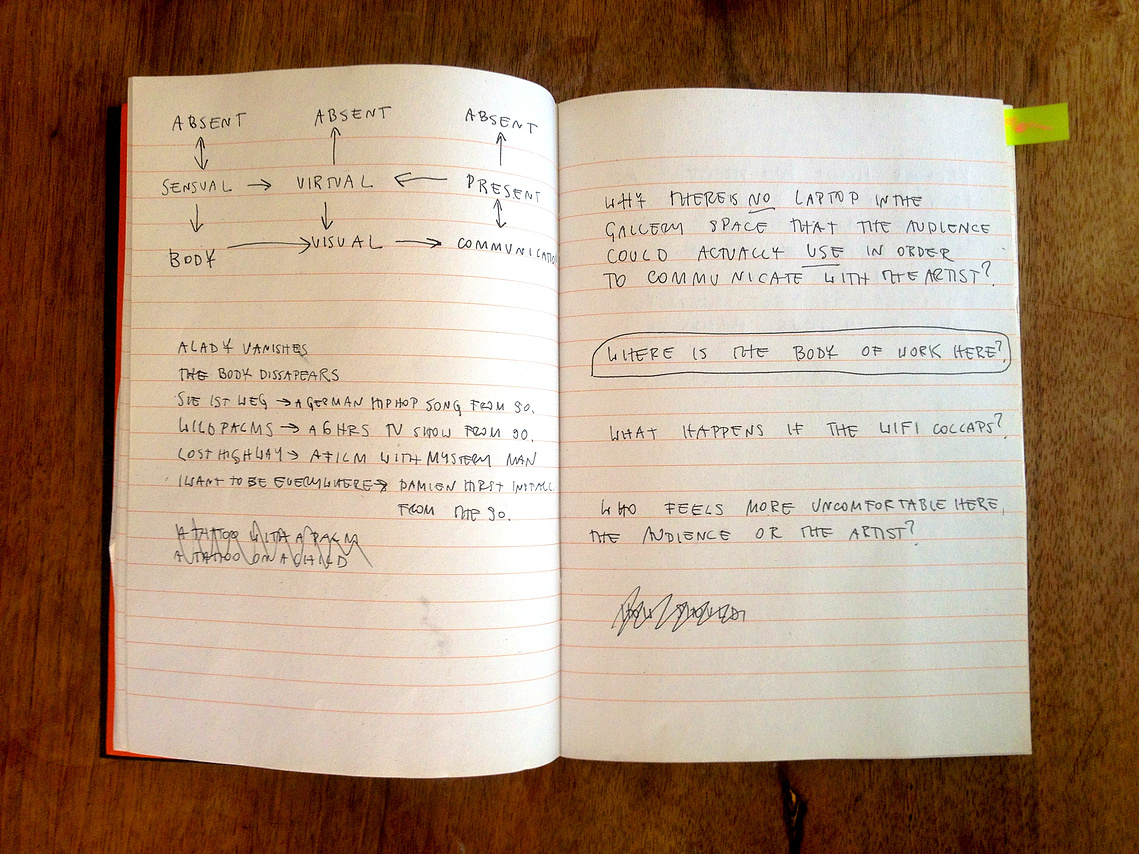 ABSENT ABSENT ABSENT
SENSUAL → VIRTUAL ← PRESENT
BODY → VISUAL → COMMUNICATION
A LADY VANISHES
THE BODY DISSAPEARS
SIE IST WEG → A GERMAN HIPHOP SONG FROM 90.
WILD PALMS → A 6 HRS TV SHOW FROM 90.
LOST HIGHWAY → A FILM WITH MYSTERY MAN
I WANT TO BE EVERYWHERE → DAMIEN HIRST INSTALL.
FROM THE 90.
A TATTOO WITH A PALM
A TATTOO ON A CHILD
WHY THERE IS NO LAPTOP IN THE
GALLERY SPACE THAT THE AUDIENCE
COULD ACTUALLY USE IN ORDER
TO COMMUNICATE WITH THE ARTIST?
WHERE IS THE BODY OF WORK HERE?
WHAT HAPPENS IF THE WIFI COLLAPS?
WHO FEELS MORE UNCOMFORTABLE HERE,
THE AUDIENCE OR THE ARTIST?